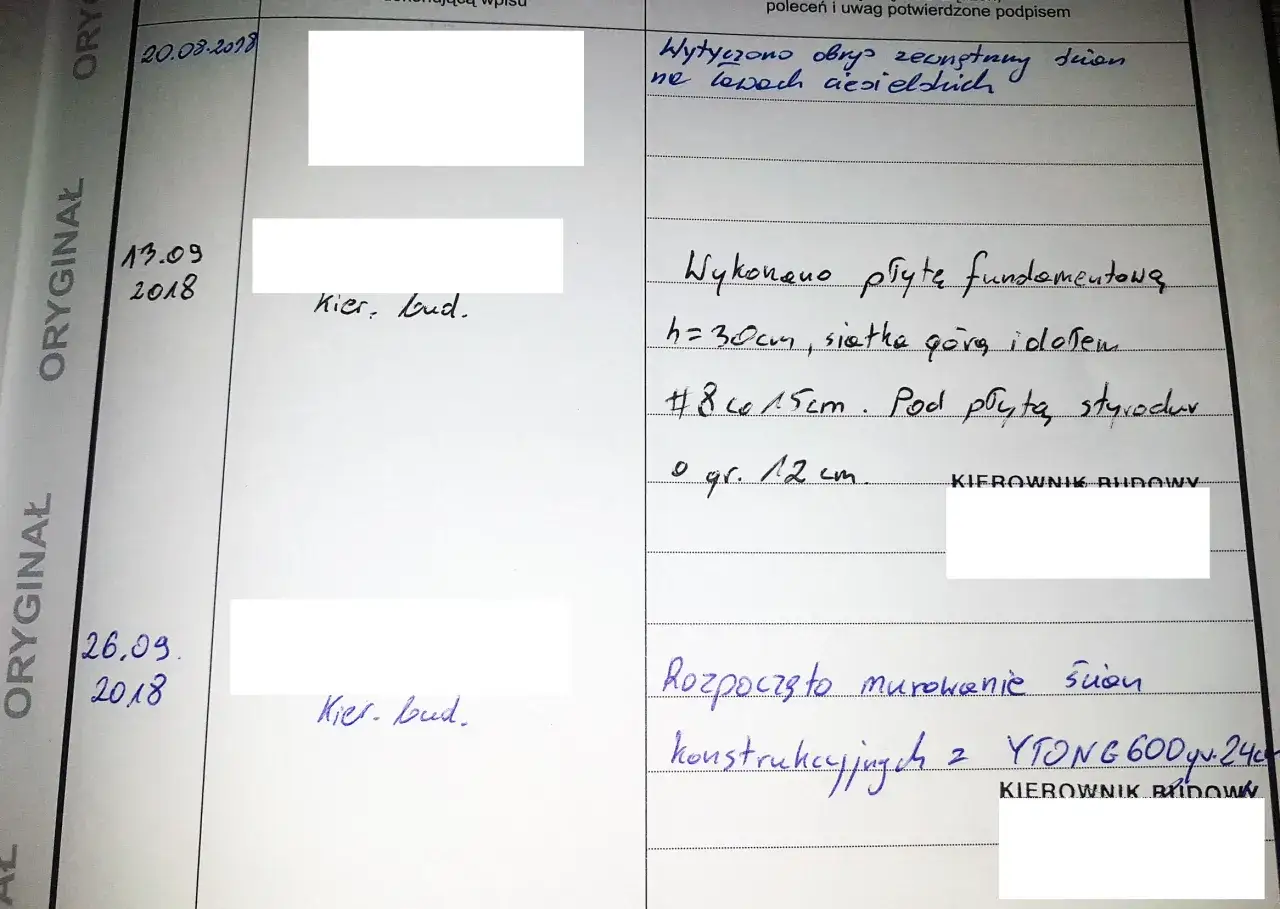 ORYGINAŁ
ORYGINAŁ
poleceń i uwag potwierdzone podpisem
20.08.2018
Wytyczono obrys zewnętrzny ścian
na ławach ciesielskich
13.09
2018
Kier. bud.
Wykonano płytę fundamentową
h=30cm, siatka górą i dołem
#8 co 15cm. Pod płytą styrodur
o gr. 12 cm.
KIEROWNIK BUDOWY
26.09.
2018
Kier. bud.
Rozpoczęto murowanie ścian
konstrukcyjnych z YTONG 600 gr. 24cm
KIEROWNIK BUDOWY